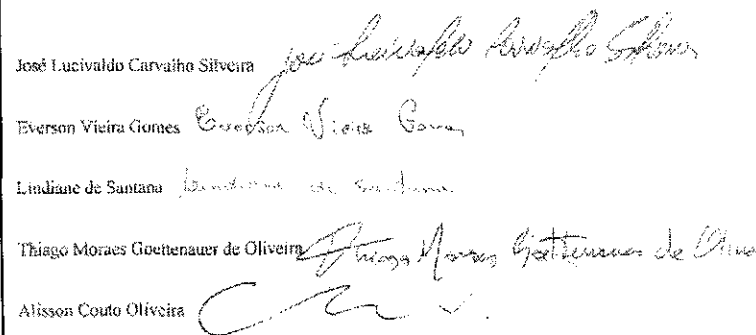 José Lucivaldo Carvalho Silveira José Lucivaldo Carvalho Silveira
Everson Vieira Gomes Everson Vieira Gomes
Lindiane de Santana Lindiane de Santana
Thiago Moraes Goettenauer de Oliveira Thiago Moraes Goettenauer de Oliveira
Alisson Couto Oliveira